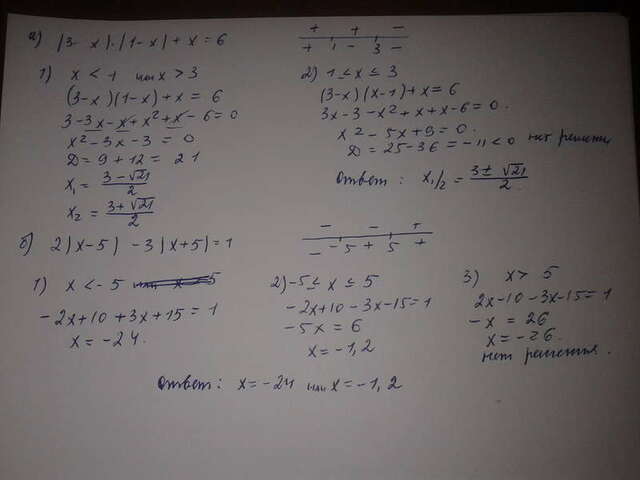 а) |3-x|·|1-x|+x=6
+ + -
+ 1 - 3 -
1) x < 1 или x > 3
(3-x)(1-x)+x = 6
3-3x-x+x²+x-6=0
x²-3x-3=0
D=9+12=21
x₁ = (3-√21)/2
x₂ = (3+√21)/2
2) 1 ≤ x ≤ 3
(3-x)(x-1)+x=6
3x-3-x²+x+x-6=0.
x²-5x+9=0.
D=25-36=-11<0 нет решения
Ответ: x₁/₂ = (3±√21)/2
б) 2|x-5| -3|x+5|=1
- - +
- -5 + 5 +
1) x<-5
-2x+10+3x+15=1
x=-24.
2) -5≤x≤5
-2x+10-3x-15=1
-5x=6
x=-1,2
3) x>5
2x-10-3x-15=1
-x=26
x=-26.
нет решения.
Ответ: x=-24 или x=-1,2